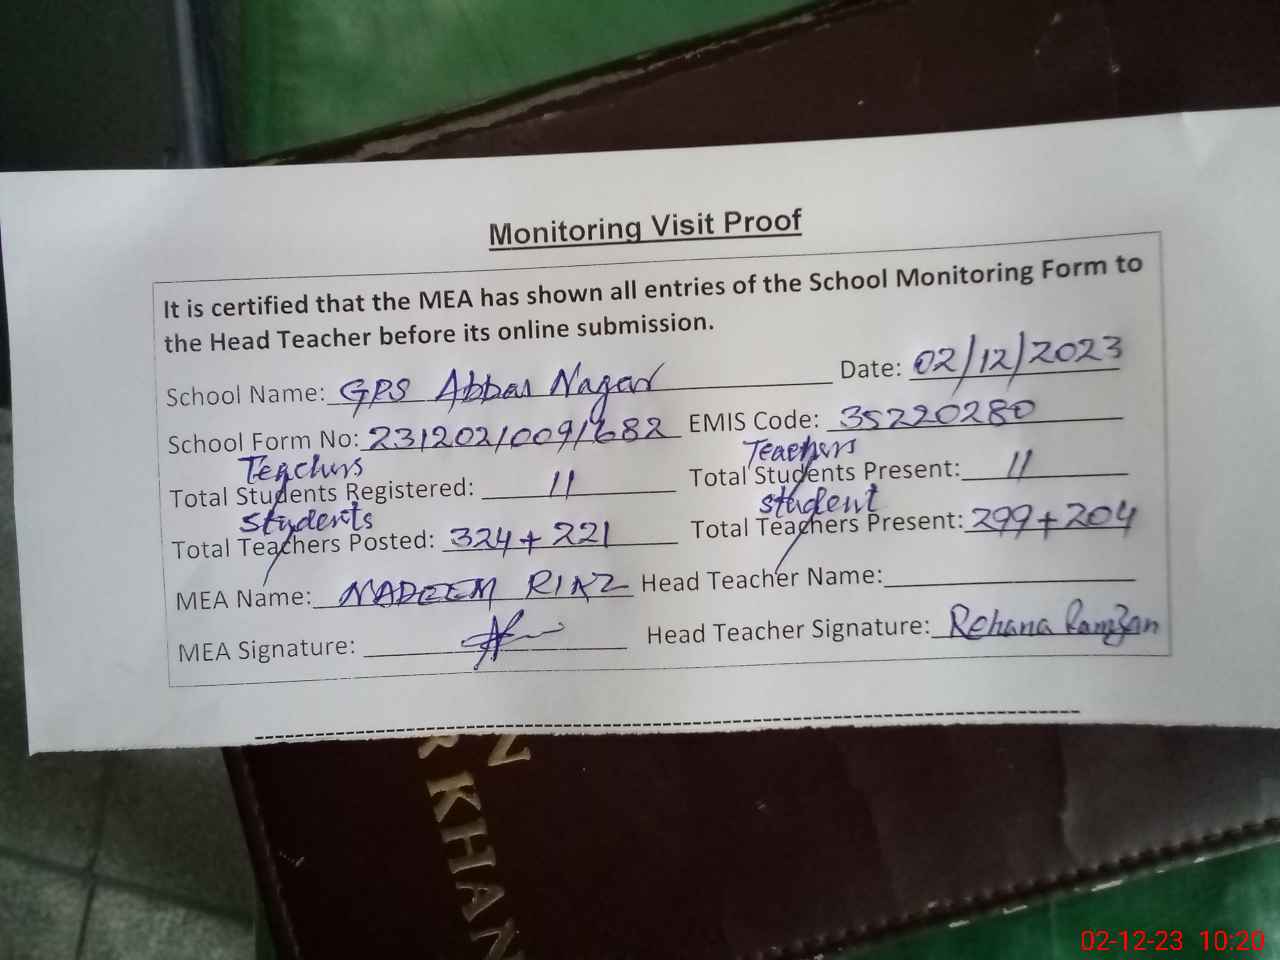 Monitoring Visit Proof
It is certified that the MEA has shown all entries of the School Monitoring Form to
the Head Teacher before its online submission.
School Name: GPS Abbas Nagar Date: 02/12/2023
School Form No: 23120210091682 EMIS Code: 35220280
Teachers Teachers
Total Students Registered: 11 Total Students Present: 11
Students Student
Total Teachers Posted: 324+221 Total Teachers Present: 299+204
MEA Name: NADEEM RIAZ Head Teacher Name:
MEA Signature: Head Teacher Signature: Rehana Ramzan
N
R KHAN
02-12-23 10:20